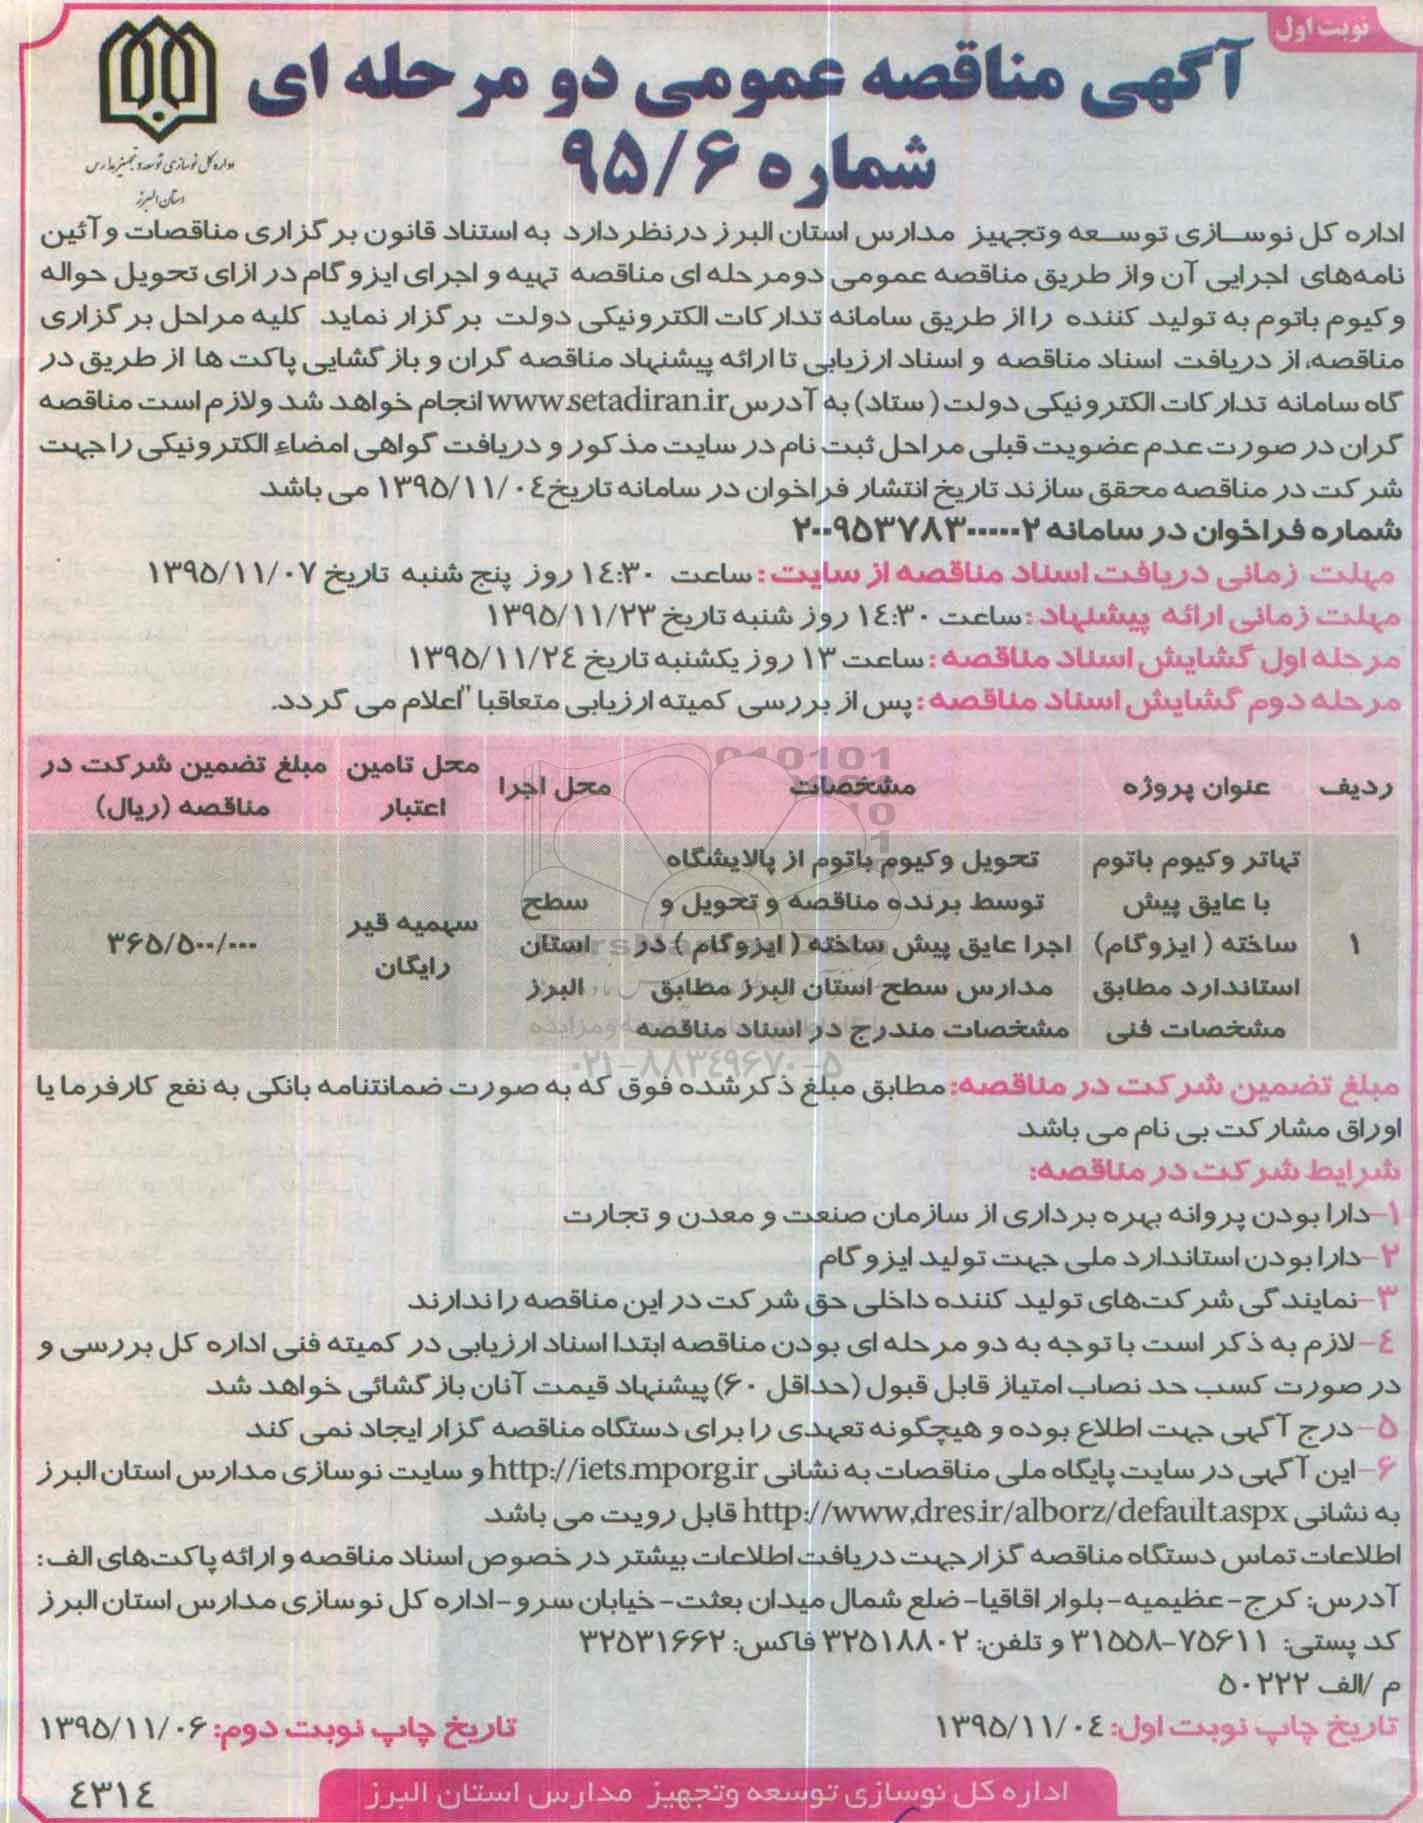 نوبت اول
آگهی مناقصه عمومی دو مرحله ای
شماره ۹۵/۶
اداره کل نوسازی توسعه و تجهیز مدارس
استان البرز
اداره کل نوسازی توسعه وتجهیز مدارس استان البرز درنظر دارد به استناد قانون برگزاری مناقصات و آئین
نامه‌های اجرایی آن واز طریق مناقصه عمومی دومرحله ای مناقصه تهیه و اجرای ایزوگام در ازای تحویل حواله
وکیوم باتوم به تولید کننده را از طریق سامانه تدارکات الکترونیکی دولت برگزار نماید کلیه مراحل برگزاری
مناقصه، از دریافت اسناد مناقصه و اسناد ارزیابی تا ارائه پیشنهاد مناقصه گران و بازگشایی پاکت ها از طریق در
گاه سامانه تدارکات الکترونیکی دولت ( ستاد) به آدرس www.setadiran.ir انجام خواهد شد ولازم است مناقصه
گران در صورت عدم عضویت قبلی مراحل ثبت نام در سایت مذکور و دریافت گواهی امضاء الکترونیکی را جهت
شرکت در مناقصه محقق سازند تاریخ انتشار فراخوان در سامانه تاریخ ۱۳۹۵/۱۱/۰۴ می باشد
شماره فراخوان در سامانه ۲۰۰۹۵۳۷۸۳۰۰۰۰۰۲
مهلت زمانی دریافت اسناد مناقصه از سایت: ساعت ۱۴:۳۰ روز پنج شنبه تاریخ ۱۳۹۵/۱۱/۰۷
مهلت زمانی ارائه پیشنهاد: ساعت ۱۴:۳۰ روز شنبه تاریخ ۱۳۹۵/۱۱/۲۳
مرحله اول گشایش اسناد مناقصه: ساعت ۱۳ روز یکشنبه تاریخ ۱۳۹۵/۱۱/۲۴
مرحله دوم گشایش اسناد مناقصه: پس از بررسی کمیته ارزیابی متعاقبا" اعلام می گردد.
ردیف عنوان پروژه مشخصات محل اجرا محل تامین اعتبار مبلغ تضمین شرکت در مناقصه (ریال)
۱
تهاتر وکیوم باتوم
با عایق پیش
ساخته ( ایزوگام)
استاندارد مطابق
مشخصات فنی
تحویل وکیوم باتوم از پالایشگاه
توسط برنده مناقصه و تحویل و
اجرا عایق پیش ساخته ( ایزوگام ) در
مدارس سطح استان البرز مطابق
مشخصات مندرج در اسناد مناقصه
سطح
استان
البرز
سهمیه قیر
رایگان
۳۶۵/۵۰۰/۰۰۰
۰۲۱-۸۸۳۴۹۶۷۰-۵
مبلغ تضمین شرکت در مناقصه: مطابق مبلغ ذکرشده فوق که به صورت ضمانتنامه بانکی به نفع کارفرما یا
اوراق مشارکت بی نام می باشد
شرایط شرکت در مناقصه:
۱-دارا بودن پروانه بهره برداری از سازمان صنعت و معدن و تجارت
۲-دارا بودن استاندارد ملی جهت تولید ایزوگام
۳-نمایندگی شرکت‌های تولید کننده داخلی حق شرکت در این مناقصه را ندارند
۴-لازم به ذکر است با توجه به دو مرحله ای بودن مناقصه ابتدا اسناد ارزیابی در کمیته فنی اداره کل بررسی و
در صورت کسب حد نصاب امتیاز قابل قبول (حداقل ۶۰) پیشنهاد قیمت آنان بازگشائی خواهد شد
۵-درج آگهی جهت اطلاع بوده و هیچگونه تعهدی را برای دستگاه مناقصه گزار ایجاد نمی کند
۶-این آگهی در سایت پایگاه ملی مناقصات به نشانی http://iets.mporg.ir و سایت نوسازی مدارس استان البرز
به نشانی http://www.dres.ir/alborz/default.aspx قابل رویت می باشد
اطلاعات تماس دستگاه مناقصه گزار جهت دریافت اطلاعات بیشتر در خصوص اسناد مناقصه و ارائه پاکت‌های الف:
آدرس: کرج-عظیمیه-بلوار اقاقیا-ضلع شمال میدان بعثت-خیابان سرو-اداره کل نوسازی مدارس استان البرز
کد پستی: ۷۵۶۱۱-۳۱۵۵۸ و تلفن: ۳۲۵۱۸۸۰۲ فاکس: ۳۲۵۳۱۶۶۲
م /الف ۵۰۲۲۲
تاریخ چاپ نوبت اول: ۱۳۹۵/۱۱/۰۴ تاریخ چاپ نوبت دوم: ۱۳۹۵/۱۱/۰۶
اداره کل نوسازی توسعه وتجهیز مدارس استان البرز
۴۳۱۴